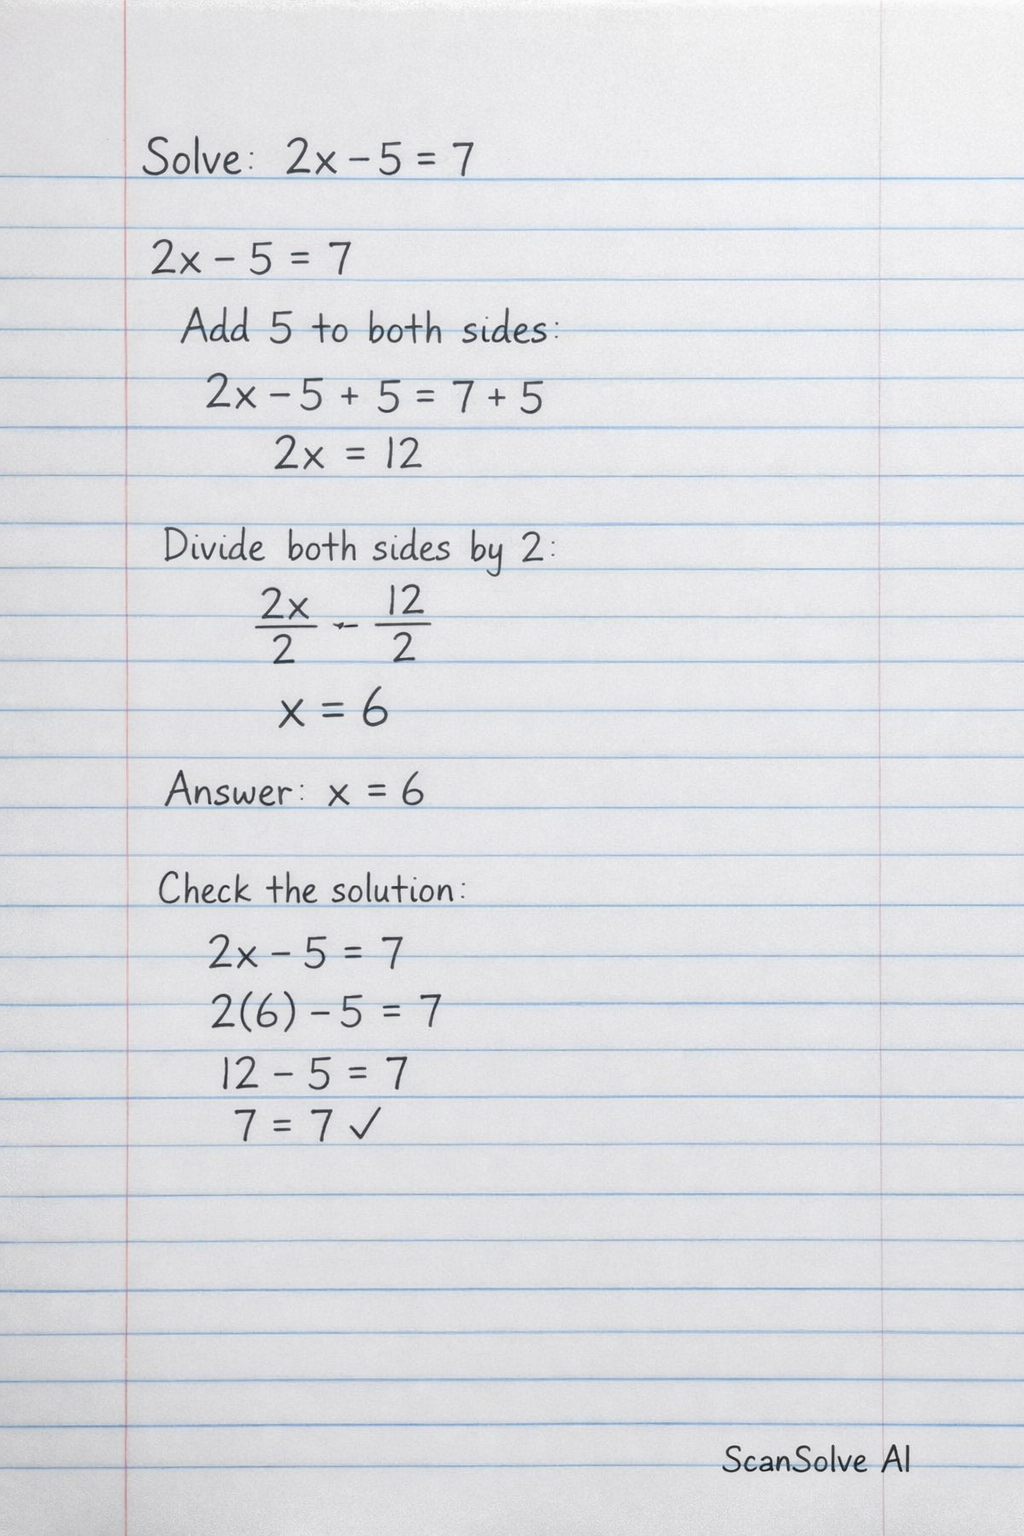 Solve: 2x - 5 = 7
2x - 5 = 7
Add 5 to both sides:
2x - 5 + 5 = 7 + 5
2x = 12
Divide both sides by 2:
2x/2 - 12/2
x = 6
Answer: x = 6
Check the solution:
2x - 5 = 7
2(6) - 5 = 7
12 - 5 = 7
7 = 7 ✓
ScanSolve AI